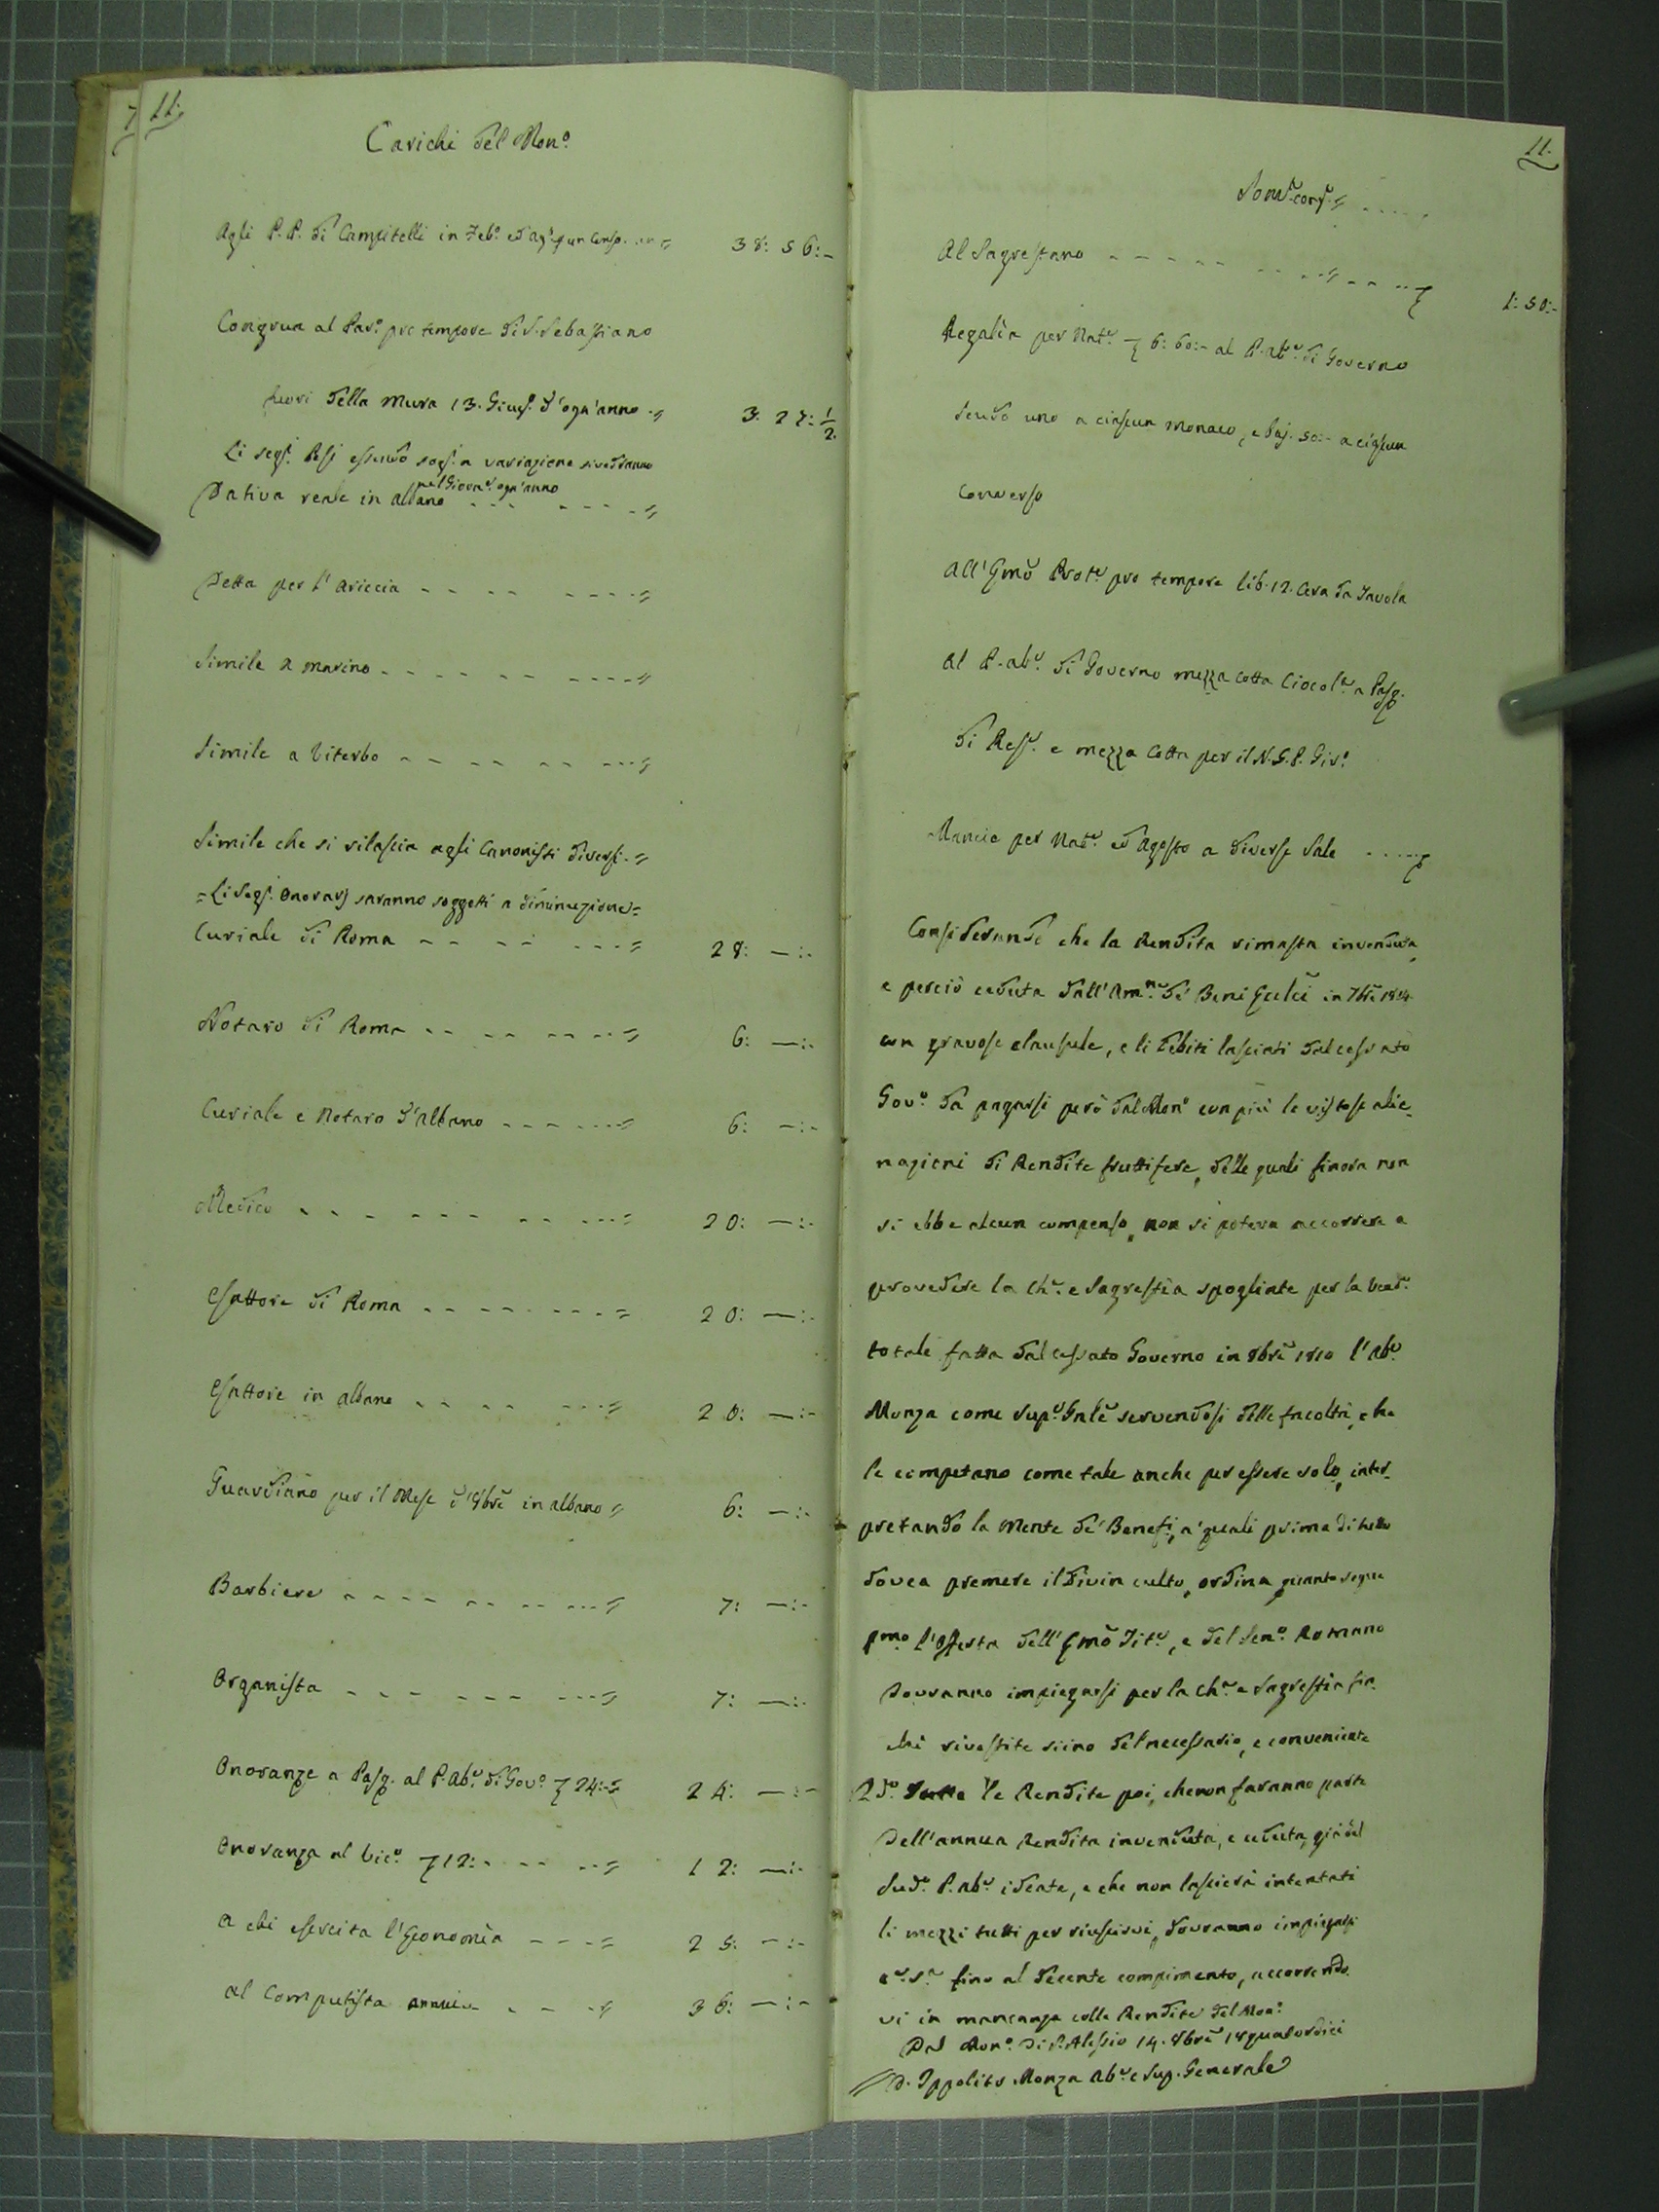 7 11.
Carichi del Mon.o
Agli P.P. di Campitelli in Feb.o ed Ag.o p un Censo 38: 56:-
Congrua al Par.o pro tempore di S. Sebastiano
fuori della mura 13. Giug.o d'ogn'anno 3. 27: 1/2
Li seg.i Pesi essendo sog.i a variazione si vedranno
nel Giorn.e ogn'anno
Dativa reale in Albano
Detta per l'Ariccia
Simile a Marino
Simile a Viterbo
Simile che si rilascia agli Canonisti diversi
=Li Seg.i Onorarj saranno soggetti a diminuzione=
Curiale di Roma 28: —:-
Notaro di Roma 6: —:-
Curiale e Notaro d'Albano 6: —:-
Medico 20: —:-
Esattore di Roma 20: —:-
Esattore in Albano 20: —:-
Guardiano per il Mese d'8bre in Albano 6: —:-
Barbiere 7: —:-
Organista 7: —:-
Onoranze a Pasq. al P. Ab.e di Gov.o 24:- 24: —:-
Onoranza al Vic.o 12: 12: —:-
a chi esercita l'Economia 25: —:-
al Computista annui 36: —:-
11.
Som.a cont.a
Al Sagrestano 1: 50:-
Regalìa per Nat.e 6: 60:- al P. Ab.e di Governo
Scudo uno a ciascun Monaco, e Baj. 50:- a ciascun
Converso
All'Emo Prot.e pro tempore lib. 12. Cera da Tavola
Al P. Ab.e di Governo mezza cotta Ciocol.a a Pasq.
di Ress. e mezza Cotta per il N.S.P. Gir.o
Mancie per Nat.e ed Agosto a diverse Sale
Considerando che la Rendita rimasta invenduta,
e perciò ceduta dall'Am.ne de' Beni Eccl.ci in 7bre 1814
con gravose clausule, e li debiti lasciati dal cessato
Gov.o da pagarsi però dal Mon.o con più le vistose alie-
nazioni di Rendite fruttifere, delle quali finora non
si ebbe alcun compenso, non si poteva accorrere a
provedere la Ch.a e Sagrestia spogliate per la vend.a
totale fatta dal cessato Governo in 8bre 1810 l'Ab.e
Monza come Sup.e Gnle servendosi delle facoltà, che
le competano come tale anche per essere solo, inter-
pretando la Mente de' Benef.i, a' quali prima di tutto
dovea premere il divin culto, ordina quanto segue
P.mo l'offerta dell'Emo Tit.e, e del Sen.o Romano
dovranno impiegarsi per la Ch.a e Sagrestia fin
chè rivestite siino del necessario, e conveniente
2.do Tutte le Rendite poi, che non faranno parte
dell'annua Rendita invenduta, e ceduta, già dal
Sud.o P. Ab.e ideate, e che non lascierà intentati
li mezzi tutti per riuscirvi, dovranno impiegarsi
c.e s.a fino al decente compimento, accorrendo
vi in mancanza colle Rendite del Mon.o
Dal Mon.o di S. Alessio 14. 8bre 18quatordici
D. Ippolito Monza Ab.e e Sup. Generale